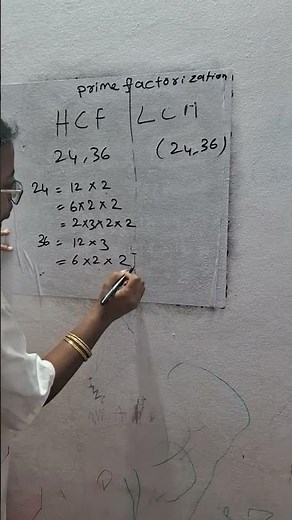 prime factorization
HCF LCM
24,36 (24,36)
24 = 12 × 2
= 6×2 × 2
= 2×3×2×2
36 = 12 × 3
= 6 ×2 × 2